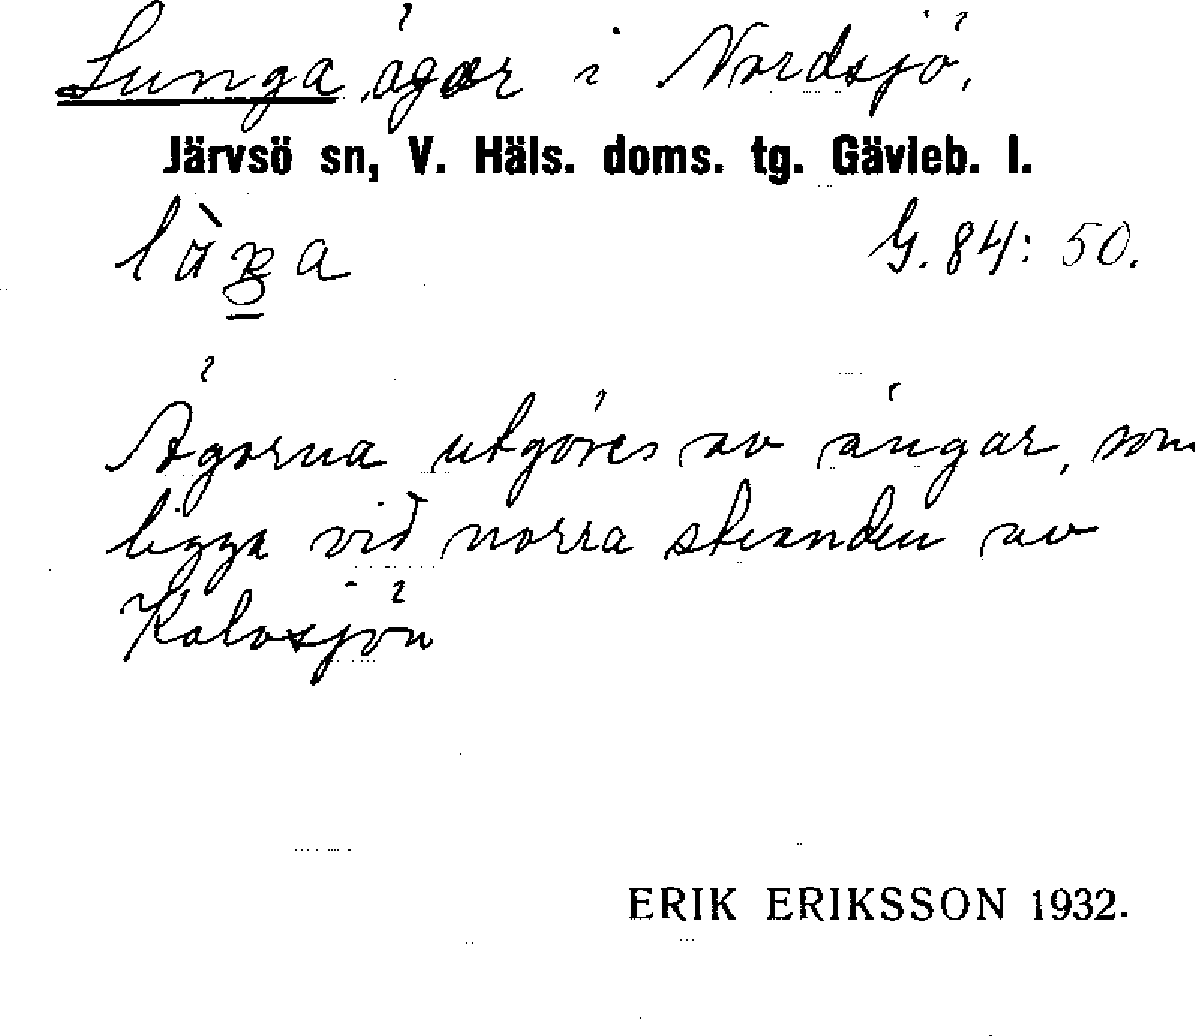 Lunga, ägor i Nordsjö.
Järvsö sn, V. Häls. doms. tg. Gävleb. l.
G. 84: 50.
Ägorna utgöres av ängar, som
ligga vid norra stranden av
Kalvsjön
ERIK ERIKSSON 1932.